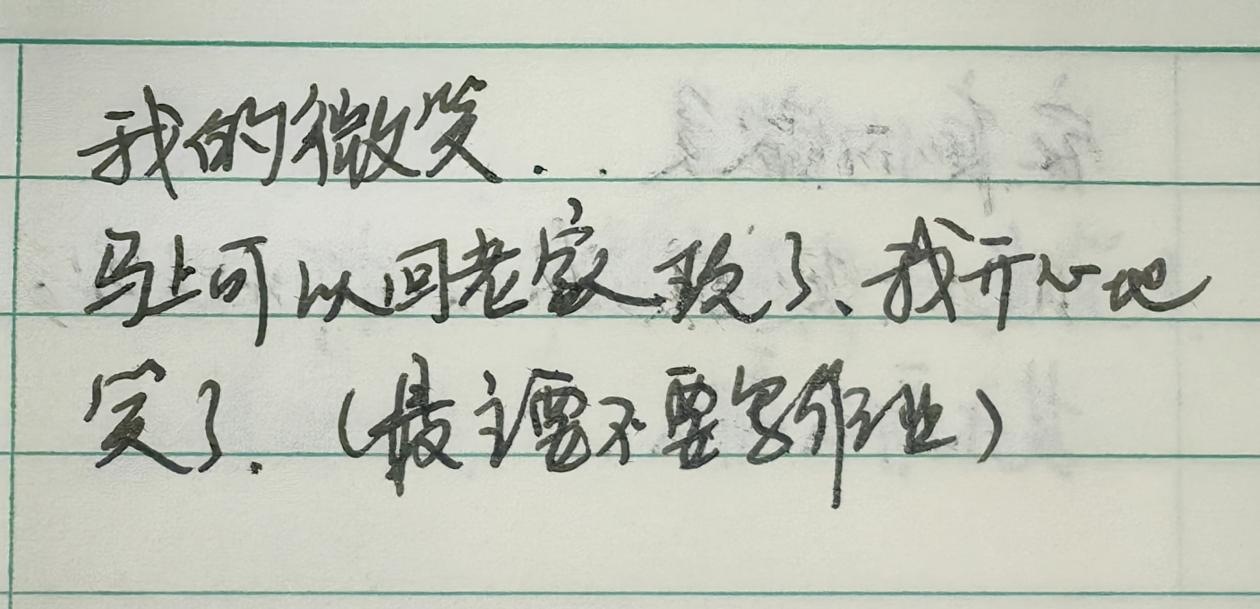 我的微笑..
马上可以回老家玩了、我开心地
笑了.（最主要不要写作业）